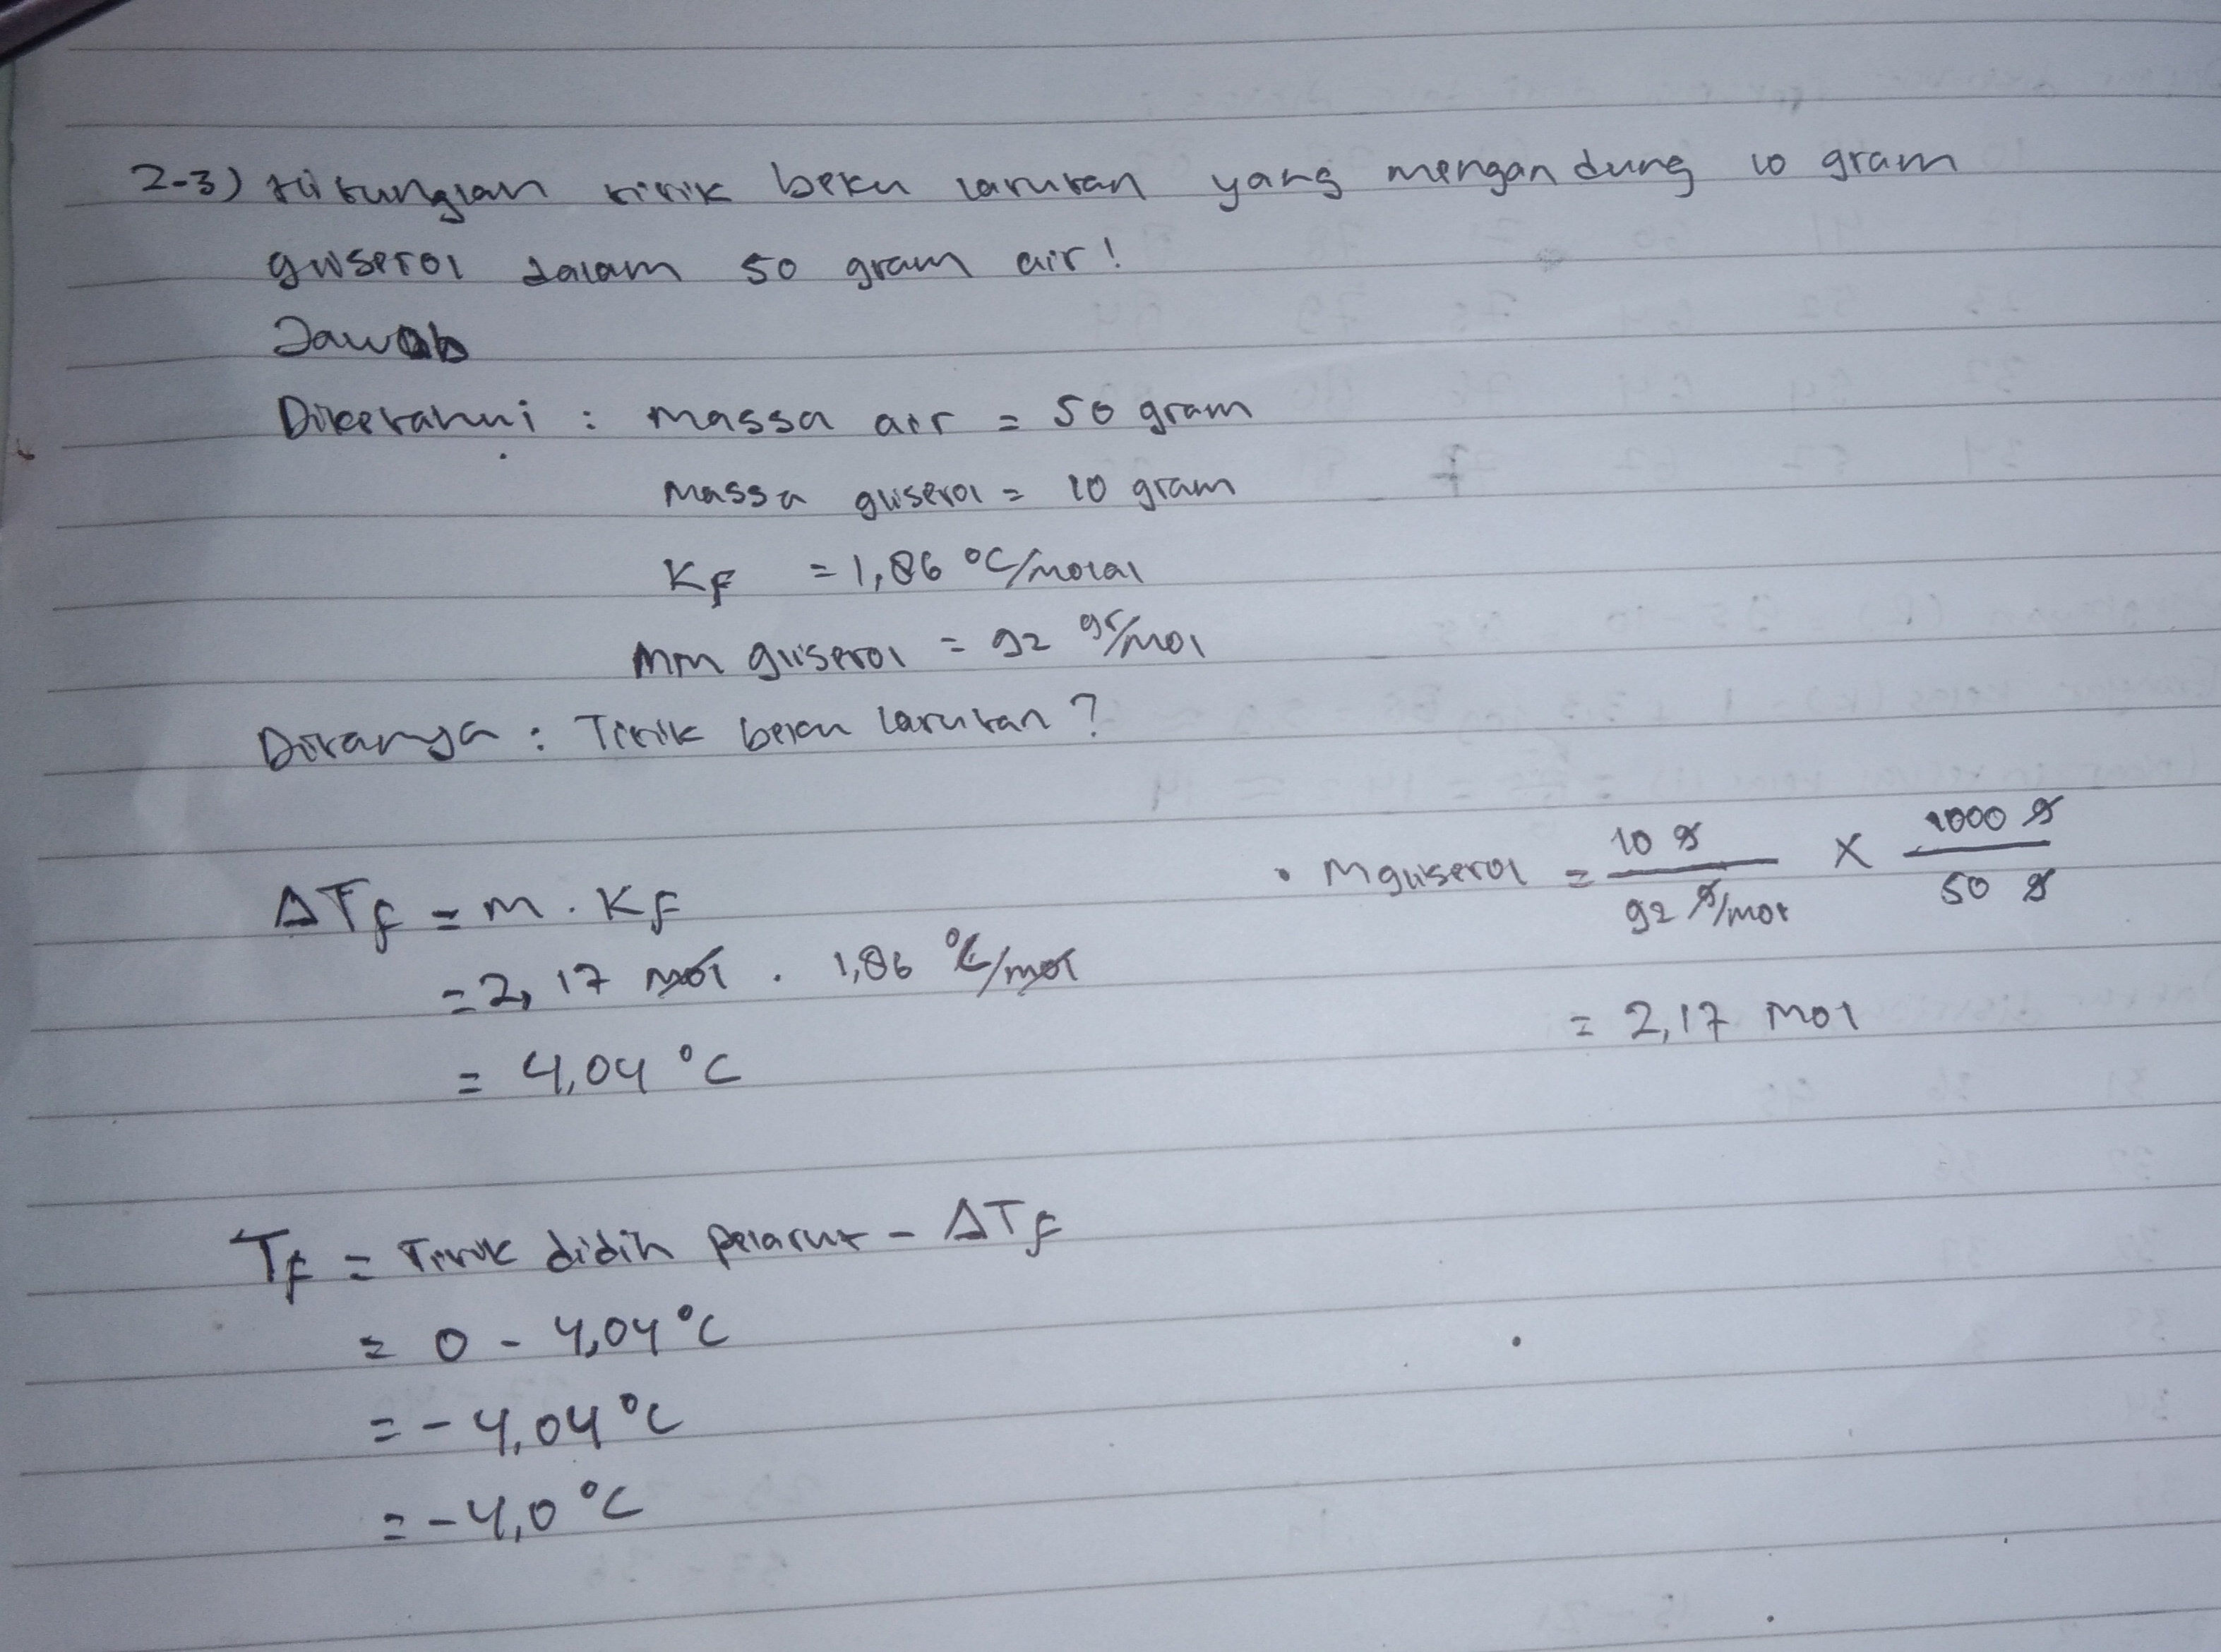 2-3) Hitunglan titik beku larutan yang mengandung 10 gram
gliserol dalam 50 gram air!
Jawab
Diketahui : massa air = 50 gram
Massa gliserol = 10 gram
Kf = 1,86 °C/molal
Mm gliserol = 92 gr/mol
Ditanya : Titik beku larutan?
ΔTf = m . Kf
= 2,17 mol . 1,86 °C/mol
= 4,04 °C
• M gliserol = 10 g / 92 g/mol × 1000 g / 50 g
= 2,17 mol
Tf = Titik didih pelarut - ΔTf
= 0 - 4,04 °C
= -4,04 °C
= -4,0 °C